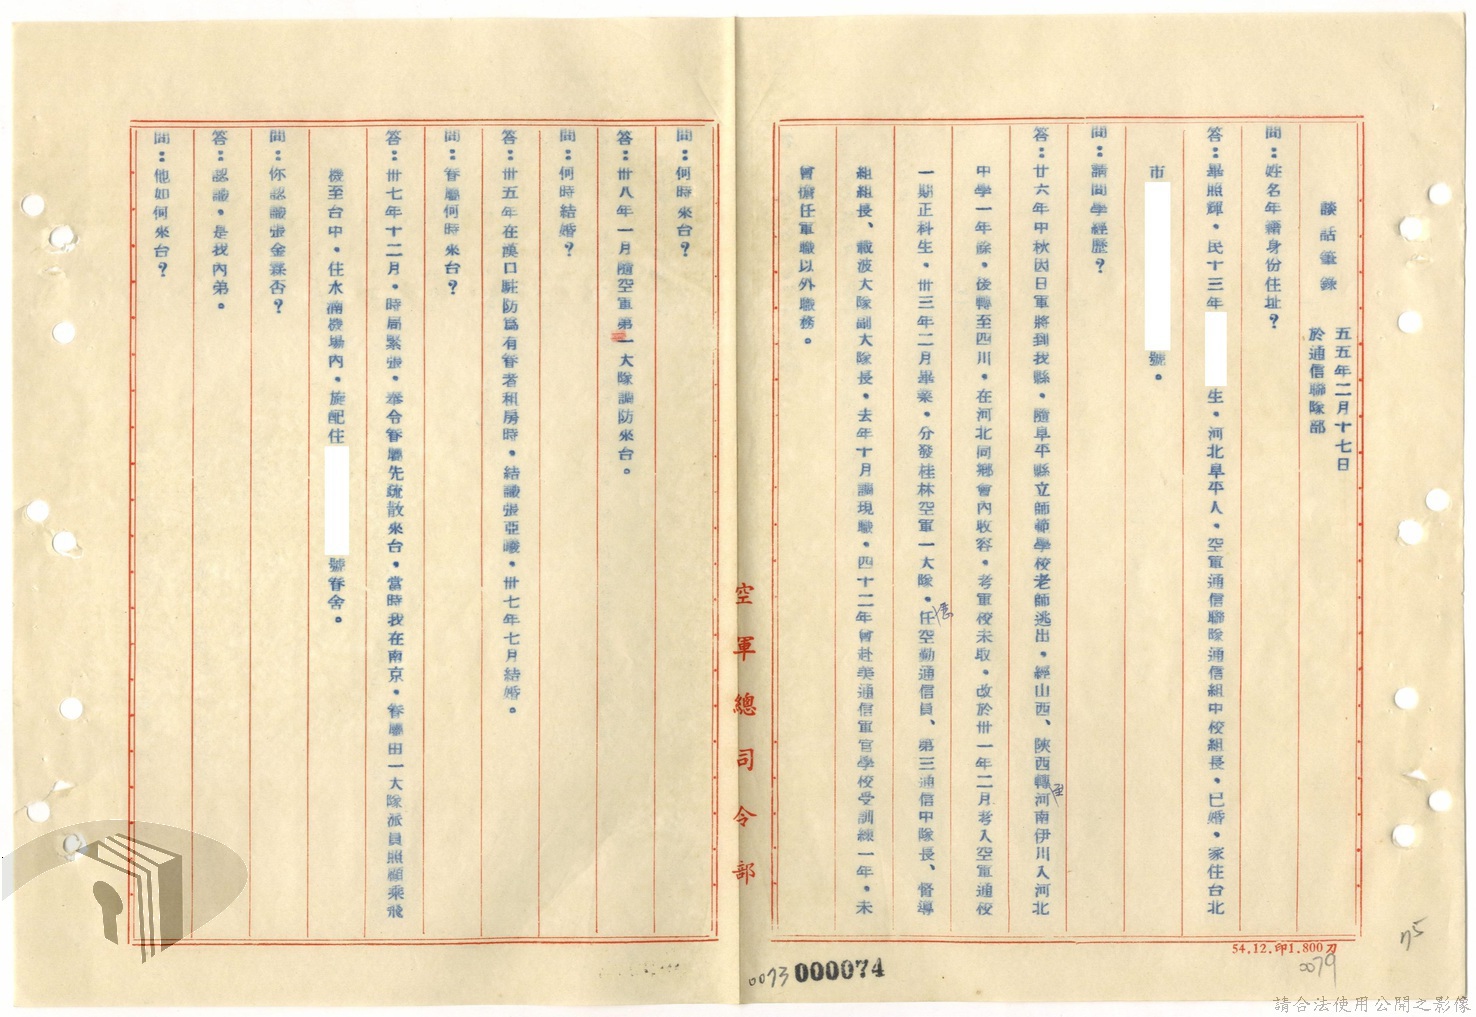 談話筆錄
五五年二月十七日
於通信聯隊部
問：姓名年籍身份住址？
答：畢照輝，民十三年 生，河北阜平人，空軍通信聯隊通信組中校組長，已婚，家住台北
市 號。
問：請問學經歷？
答：廿六年中秋因日軍將到我縣，隨阜平縣立師範學校老師逃出，經山西、陝西轉至河南伊川入河北
中學一年餘，後轉至四川，在河北同鄉會內收容，考軍校未取，改於卅一年二月考入空軍通校
一期正科生，卅三年二月畢業，分發桂林空軍一大隊，任空勤通信員、第三通信中隊長、督導
組組長、載波大隊副大隊長，去年十月調現職，四十二年曾赴美通信軍官學校受訓練一年，未
曾擔任軍職以外職務。
問：何時來台？
答：卅八年一月隨空軍第一大隊調防來台。
問：何時結婚？
答：卅五年在漢口駐防為有眷者租房時，結識張亞曦，卅七年七月結婚。
問：眷屬何時來台？
答：卅七年十二月，時局緊張，奉令眷屬先疏散來台，當時我在南京，眷屬由一大隊派員照顧乘飛
機至台中，住水湳機場內，旋配住 號眷舍。
問：你認識張金霖否？
答：認識，是我內弟。
問：他如何來台？
空軍總司令部
54.12.印1.800刀
0073 000074
0079
75
請合法使用公開之影像